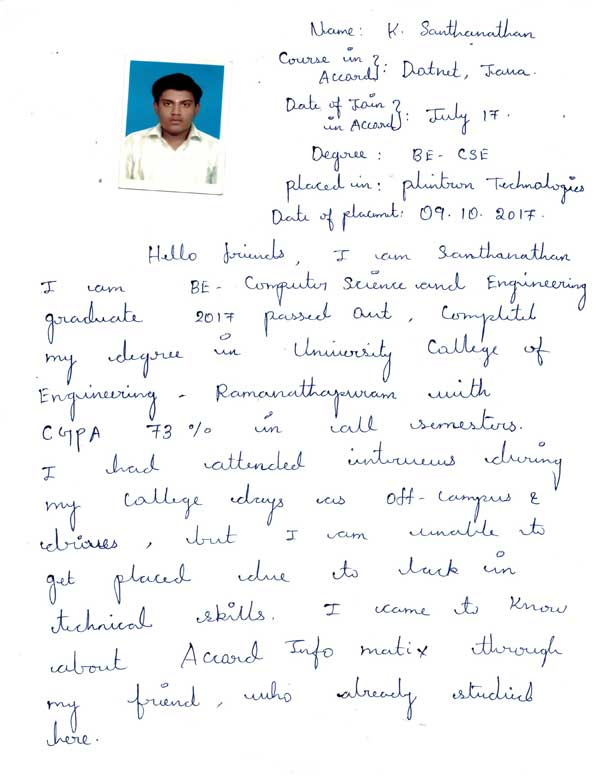 Name: K. Santhanathan
Course in Accord}: Dotnet, Java.
Date of Join in Accord}: July 17.
Degree: BE - CSE
placed in: plintron Technologies
Date of placmt: 09.10.2017.
Hello friends, I am Santhanathan
I am BE - Computer Science and Engineering
graduate 2017 passed out, Completed
my degree in University College of
Engineering - Ramanathapuram with
CGPA 73 % in all semesters.
I had attended interviews during
my college days as off-campus &
drives, but I am unable to
get placed due to lack in
technical skills. I came to know
about Accord Info matix through
my friend, who already studied
here.